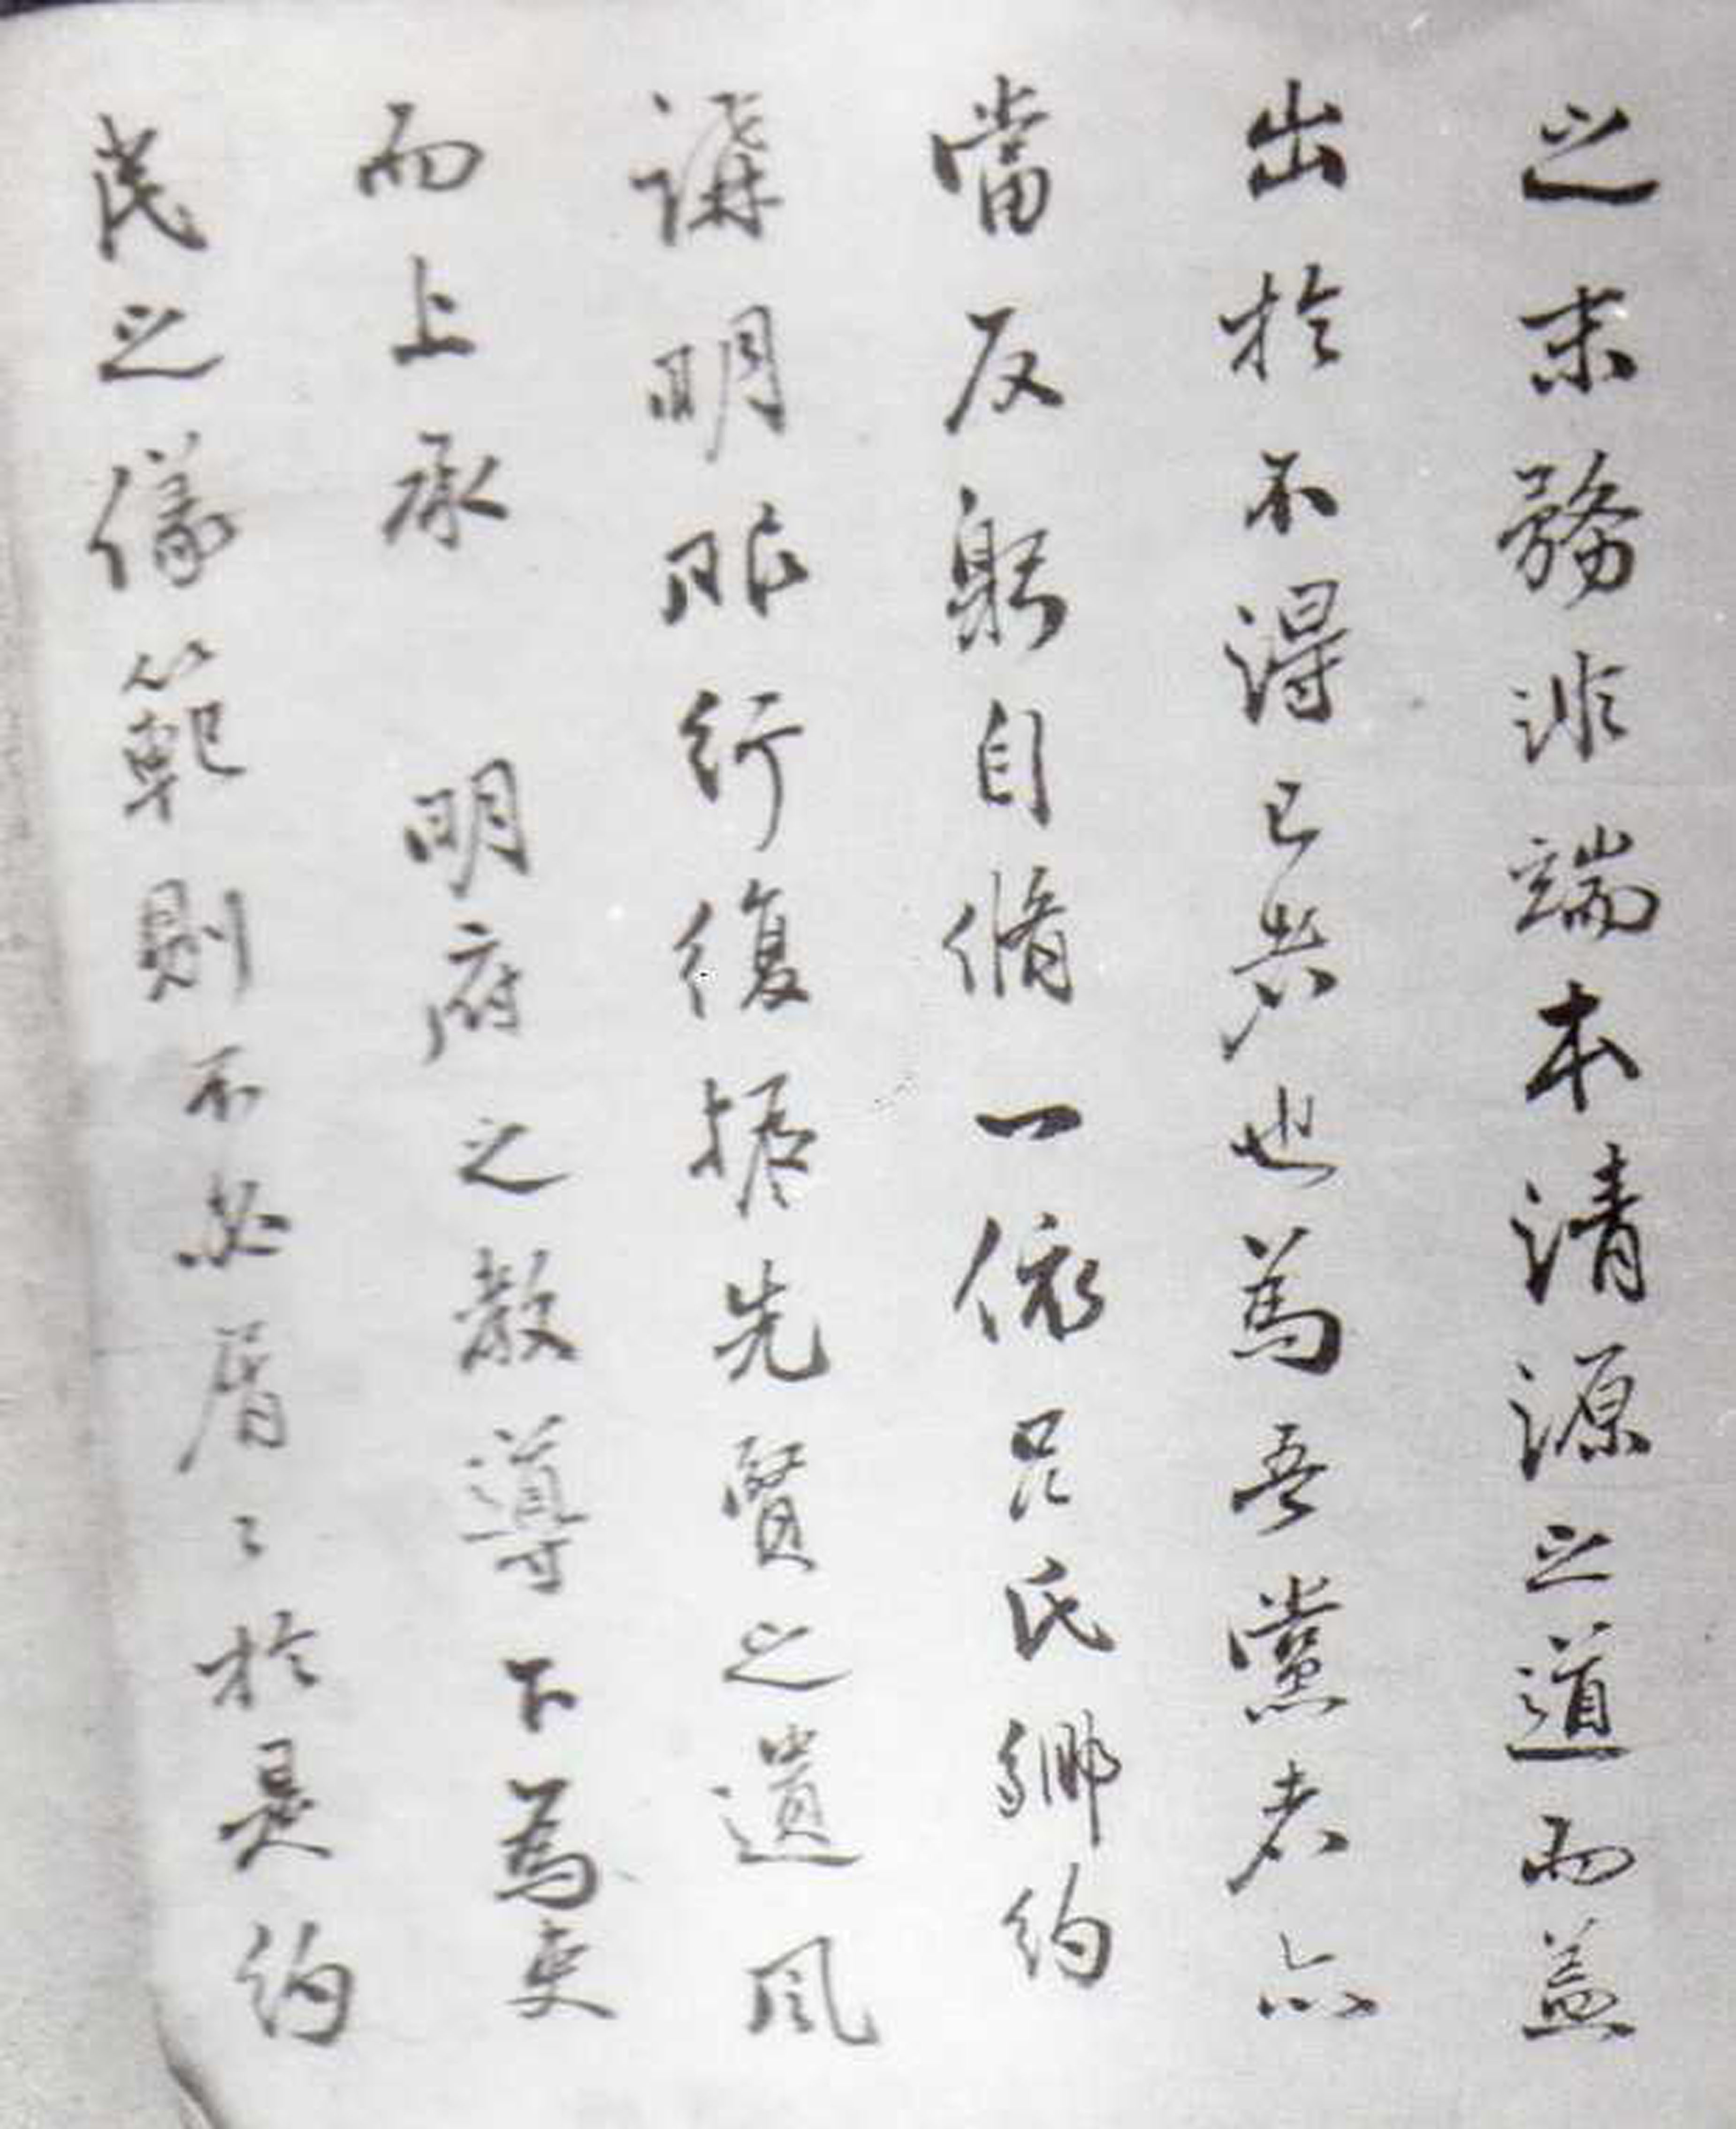 之末務非端本清源之道而盖
出於不得已者也爲吾黨者亦
當反躬自脩一依吕氏鄉約
講明服行復振先賢之遺風
而上承 明府之教導下爲吏
民之儀範則不必屑〻於是約